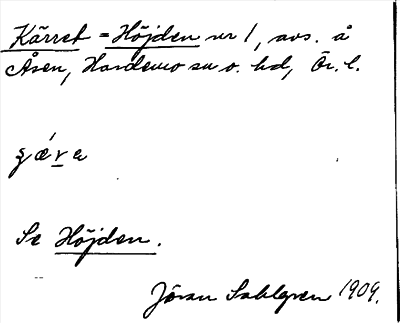 Kärret = Höjden nr 1, avs. å
Åsen, Hardemo sn o. hd, Ör. l.
Se Höjden.
Jöran Sahlgren 1909.